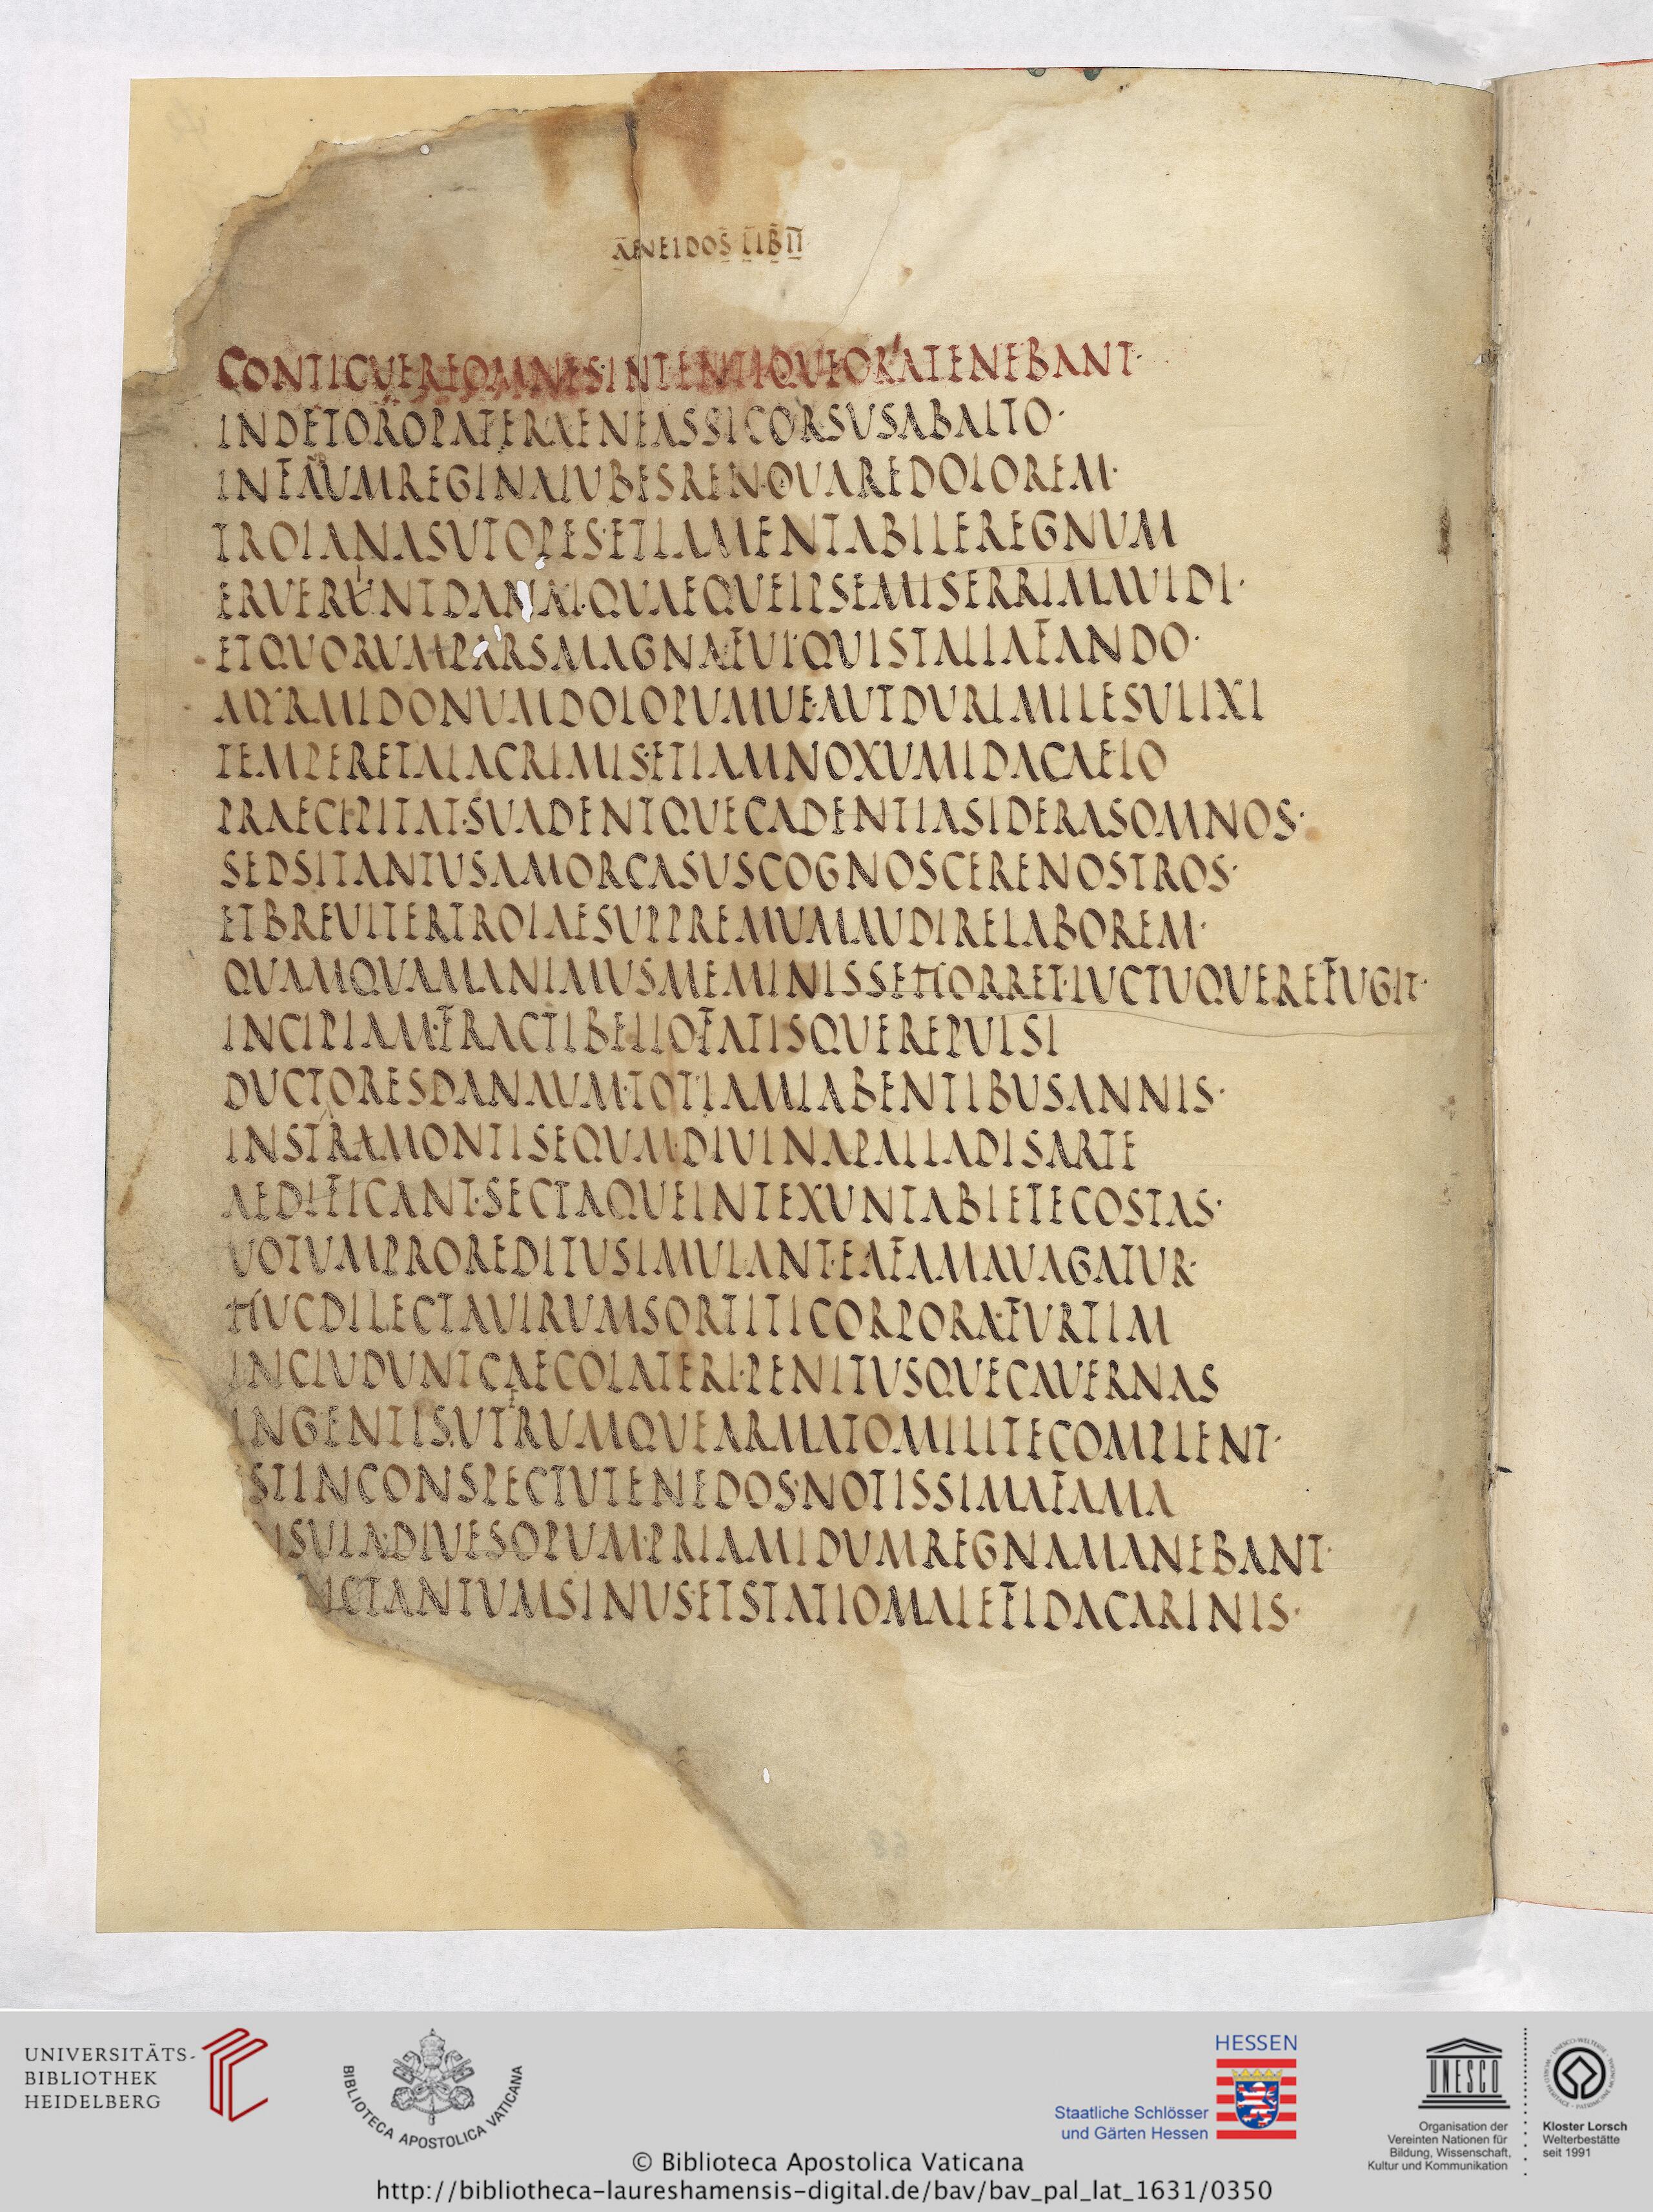 AENEIDOS LIB II
CONTICVEREOMNES·INTENTIQVEORATENEBANT·
INDETOROPATERAENEASSICORSUSABALTO·
INFANDUMREGINAIUBESRENOUAREDOLOREM·
TROIANASUTOPES·ETLAMENTABILEREGNUM
ERVERUNTDANAI·QUAEQUEIPSEMISERRIMAUIDI·
ETQUORUMPARSMAGNAFUI·QUISTALIAFANDO·
MYRMIDONUMDOLOPUMUE·AUTDURIMILESULIXI
TEMPERETALACRIMIS·ETIAMNOXUMIDACAELO
PRAECIPITAT·SUADENTQUECADENTIASIDERASOMNOS·
SEDSITANTUSAMORCASUSCOGNOSCERENOSTROS·
ETBREUITERTROIAESUPPREMUMAUDIRELABOREM·
QUAMQUAMANIMUSMEMINISSEHORRET·LUCTUQUEREFUGIT·
INCIPIAM·FRACTIBELLOFATISQUEREPULSI
DUCTORESDANAUM·TOTIAMLABENTIBUSANNIS·
INSTRAMONTISEQUM·DIUINAPALLADISARTE
AEDIFICANT·SECTAQUEINTEXUNTABIETECOSTAS·
UOTUMPROREDITUSIMULANT·EAFAMAUAGATUR·
HUCDILECTAUIRUMSORTITICORPORA·FURTIM
INCLUDUNTCAECOLATERI·PENITUSQUECAUERNAS
INGENTISUTRUMQUEARMATOMILITECOMPLENT·
STINCONSPECTUTENEDOS·NOTISSIMAFAMA
SULA·DIUESOPUM·PRIAMIDUMREGNAMANEBANT·
NCTANTUMSINUS·ETSTATIOMALEFIDACARINIS·
UNIVERSITÄTS-
BIBLIOTHEK
HEIDELBERG
BIBLIOTECA APOSTOLICA VATICANA
HESSEN
Staatliche Schlösser
und Gärten Hessen
UNESCO
Organisation der
Vereinten Nationen für
Bildung, Wissenschaft,
Kultur und Kommunikation
Kloster Lorsch
Welterbestätte
seit 1991
© Biblioteca Apostolica Vaticana
http://bibliotheca-laureshamensis-digital.de/bav/bav_pal_lat_1631/0350